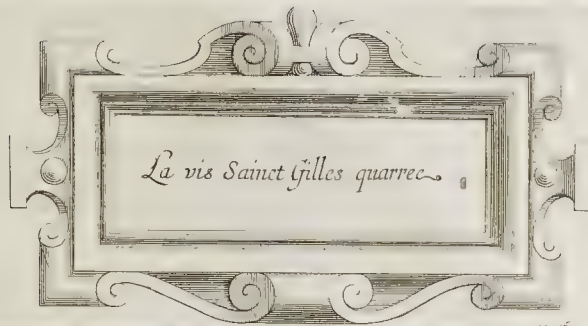 La vis Sainct Gilles quarree